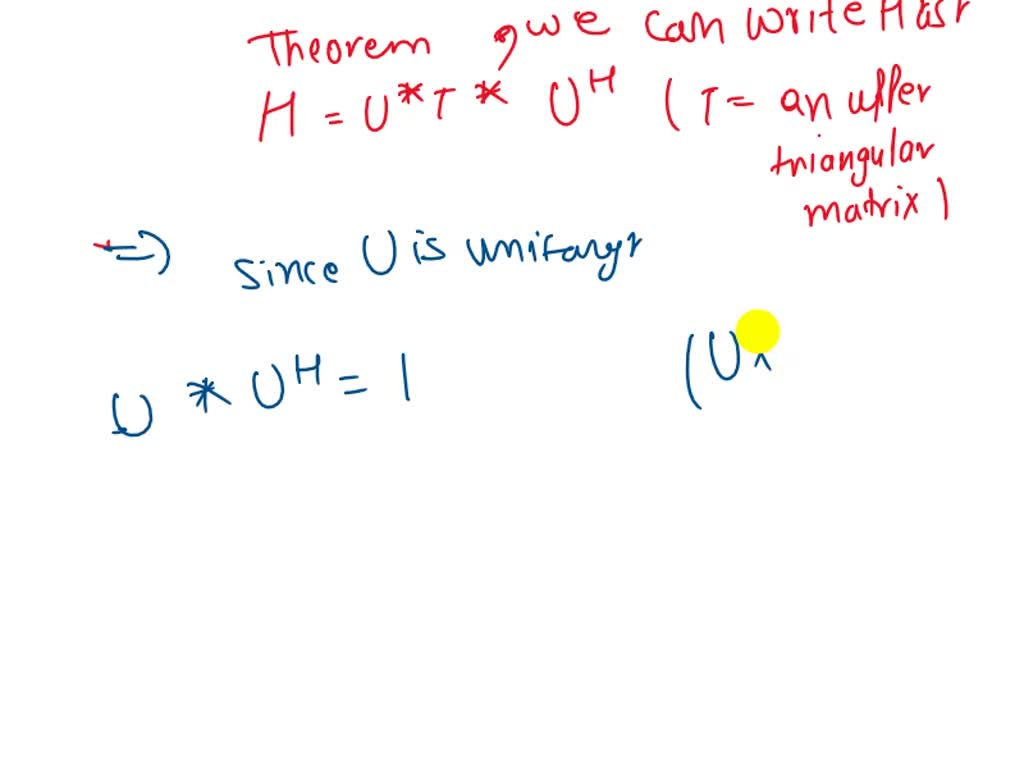 Theorem , we can write H as
H = U * T * U^H ( T = an upper
triangular
matrix )
=> since U is unitary
U * U^H = I
( U